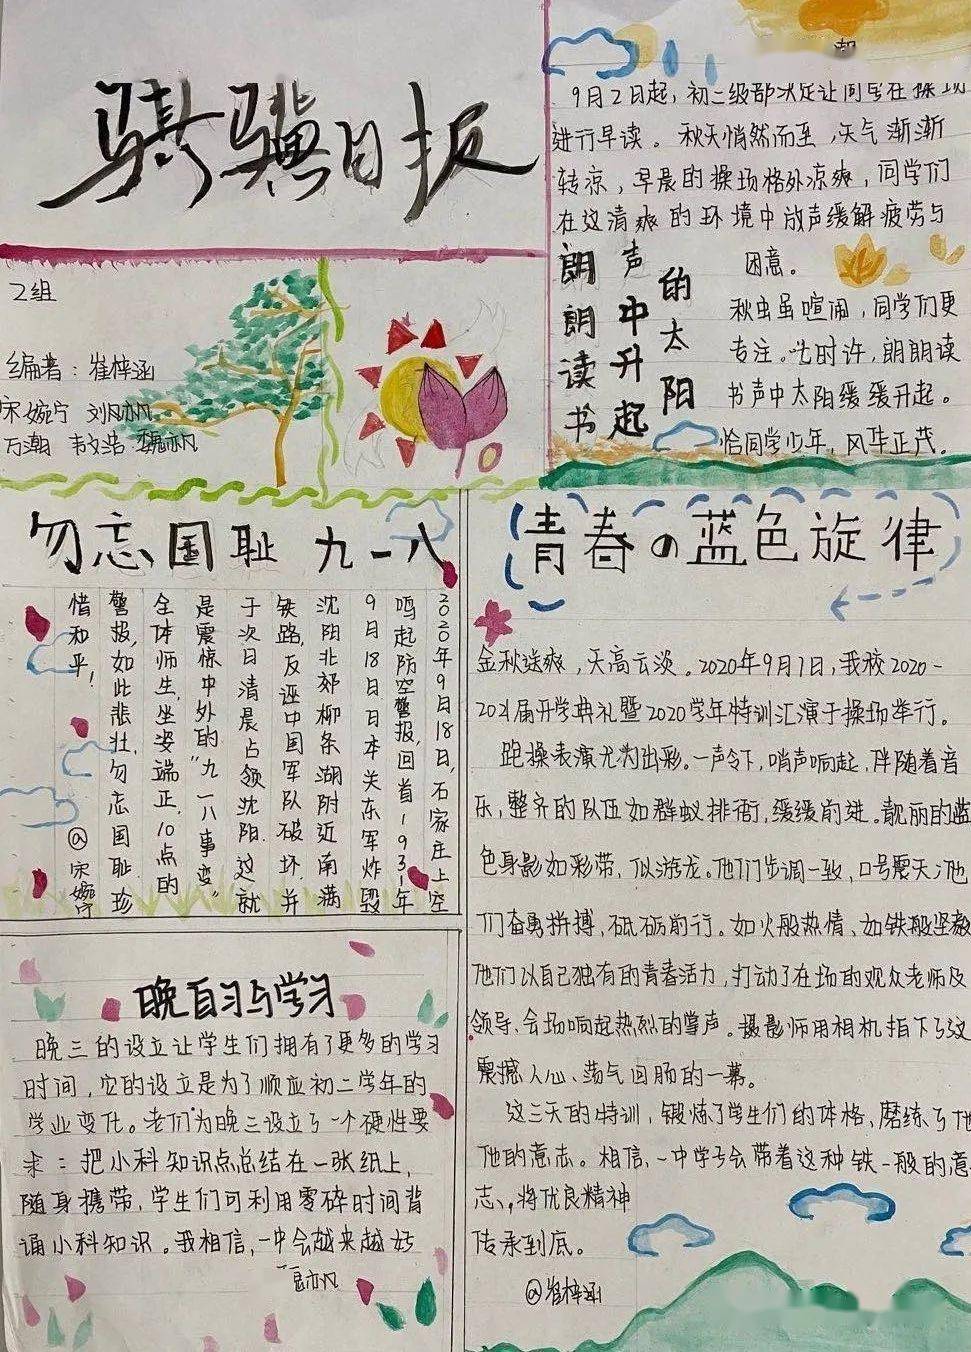 骐骥日报
2组
编著：崔梓涵
宋婉宁 刘帆帆
万瀚 韦文浩 魏亦帆
起
9月2日起，初二级部决定让同学在操场
进行早读。秋天悄然而至，天气渐渐
转凉，早晨的操场格外凉爽，同学们
在这清爽的环境中放声缓解疲劳与
困意。
朗朗读书
声中升起
的太阳
秋虫虽喧闹，同学们更
专注。七时许，朗朗读
书声中太阳缓缓升起。
恰同学少年，风华正茂。
勿忘国耻 九一八
2020年9月18日，石家庄上空
鸣起防空警报，回首1931年
9月18日日本关东军炸毁
沈阳北郊柳条湖附近南满
铁路，反诬中国军队破坏，并
于次日清晨占领沈阳，这就
是震惊中外的"九一八事变"
全体师生，坐姿端正，10点的
警报，如此悲壮，勿忘国耻，珍
惜和平！
@宋婉宁
青春の蓝色旋律
金秋送爽，天高云淡。2020年9月1日，我校2020-
2021届开学典礼暨2020学年特训汇演于操场举行。
跑操表演尤为出彩。一声令下，哨声响起，伴随着音
乐，整齐的队伍如群蚁排衙，缓缓前进。靓丽的蓝
色身影如彩带，似游龙。他们步调一致，口号震天；他
们奋勇拼搏，砥砺前行。如火般热情、如铁般坚毅
他们以自己独有的青春活力，打动了在场的观众老师及
领导，会场响起热烈的掌声。摄影师用相机拍下了这
震撼人心、荡气回肠的一幕。
这三天的特训，锻炼了学生们的体格，磨练了他
他的意志。相信，一中学子会带着这种铁一般的意
志，将优良精神
传承到底。
@崔梓涵
晚自习与学习
晚三的设立让学生们拥有了更多的学习
时间，它的设立是为了顺应初二学年的
学业变化。老们为晚三设立了一个硬性要
求：把小科知识点总结在一张纸上，
随身携带，学生们可利用零碎时间背
诵小科知识。我相信，一中会越来越好
亦帆